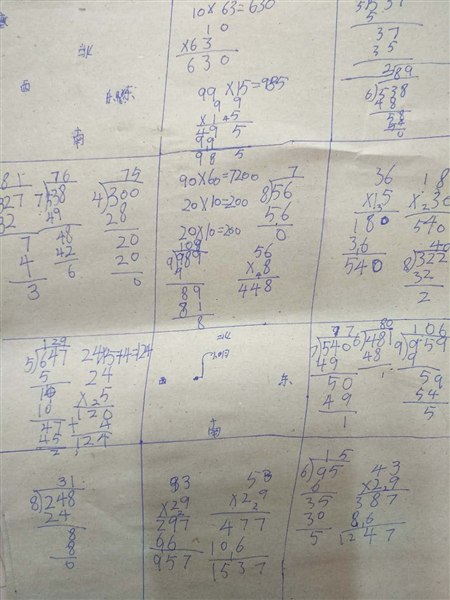 10×63=630
10
×63
630
北
西
东
南
99×15=985
99
×15
495
99
985
5
37
35
2
89
6)538
48
58
54
81
327
32
7
4
3
76
7)538
49
48
42
6
75
4)300
28
20
20
0
90×60=7200
20×10=200
20×10=200
109
9)989
9
89
81
8
7
8)56
56
0
56
×8
448
36
×15
180
36
540
18
×30
540
40
8)322
32
2
129
5)647
5
14
10
47
45
2
24×5+4=124
24
×5
120
+4
124
北
东
南
77
7)540
49
50
49
1
80
6)481
48
1
106
9)959
9
59
54
5
31
8)248
24
8
8
0
33
×29
297
66
957
53
×29
477
106
1537
15
6)95
6
35
30
5
43
×29
387
86
1247